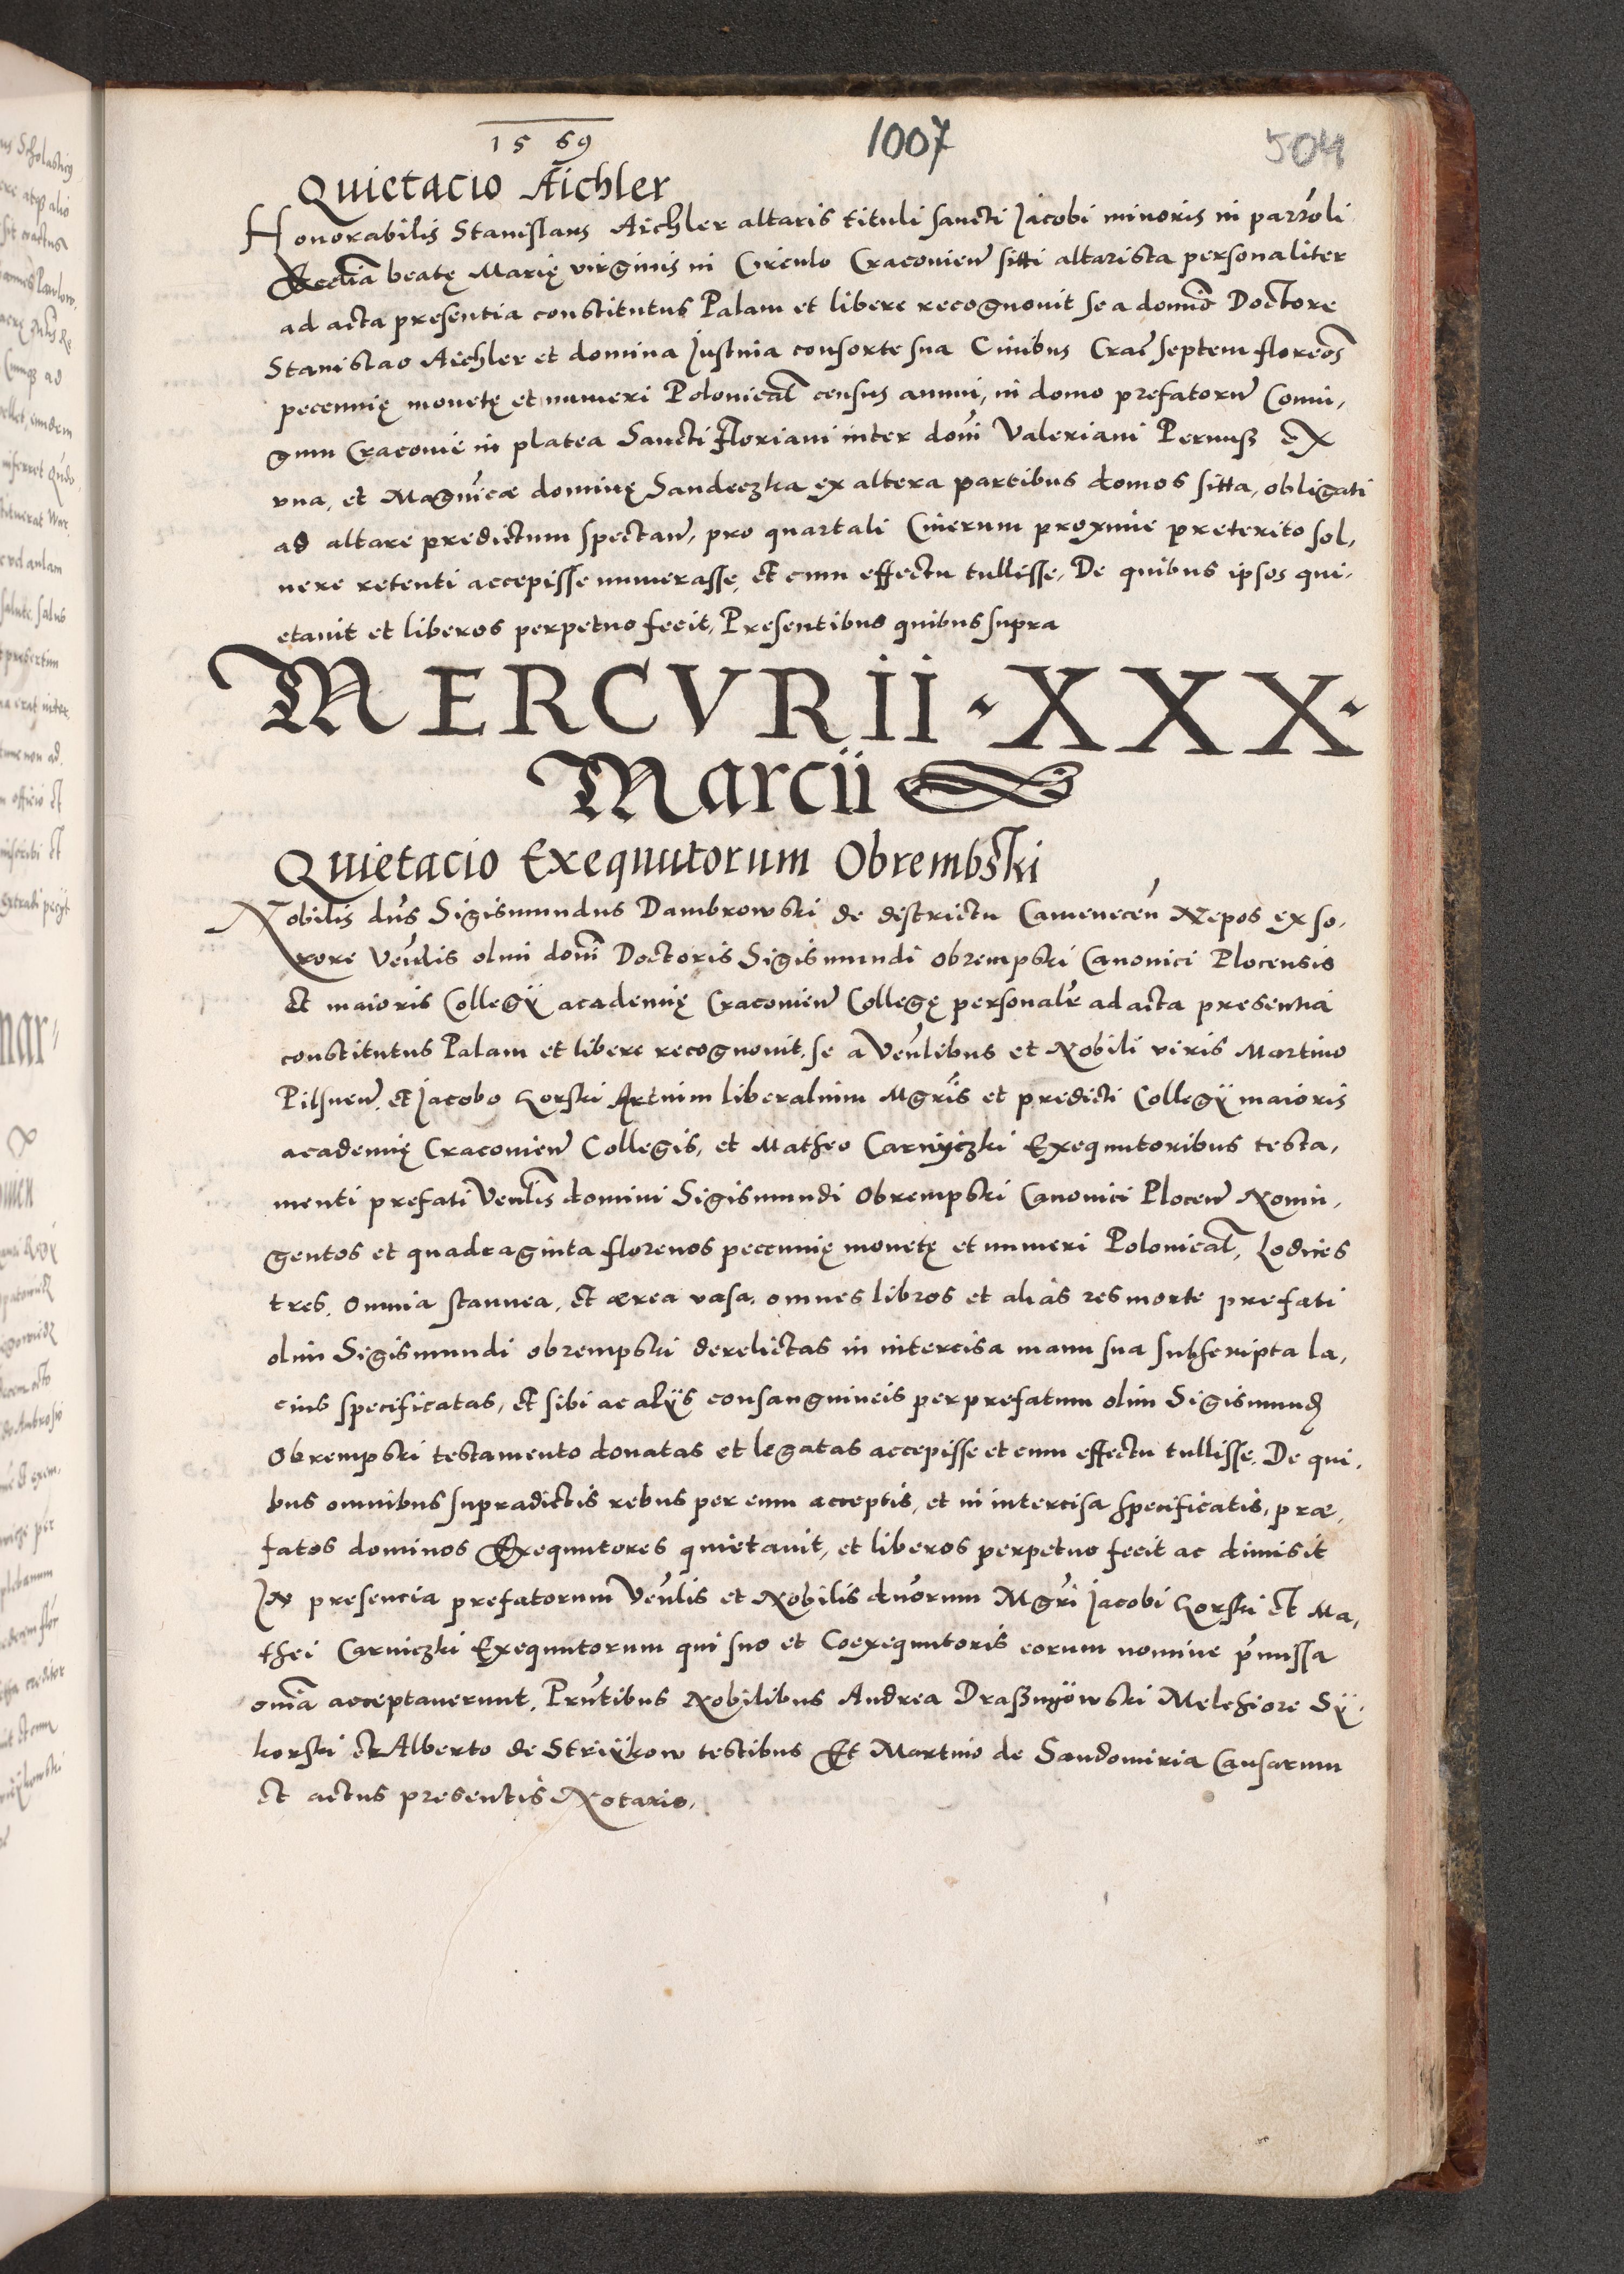 1569
1007
504
Quietacio Aichler
Honorabilis Stanislaus Aichler altaris tituli sancti Jacobi minoris in parroli
Ecclia beatę Marię virginis in Circulo Cracovien sitti altarista personaliter
ad acta presentia constitutus Palam et libere recognouit se a domino Doctore
Stanislao Aichler et domina Justina consorte sua Ciuibus Crac septem florenos
pecennię monetę et numeri Polonicал census annui, in domo prefatorum Coniu,
gum Cracovie in platea Sancti Floriani inter domi Valeriani Pernuß ex
vna, et Magnicæ dominę Sandeczka ex altera partibus domos sitta, obligati
ad altare predictum spectan, pro quartali Cinerum proxime preterito sol,
uere retenti accepisse numerasse, et cum effectu tullisse, De quibus ipsos qui,
etauit et liberos perpetuo fecit, Presentibus quibus supra
MERCVRII · XXX ·
Marcii
Quietacio Exequutorum Obrembski
Nobilis dns Sigismundus Dambrowski de districtu Camenecen Nepos ex so,
rore Venlis olim domi Doctoris Sigismundi Obrempski Canonici Plocensis
et maioris Collegÿ academię Cracovien Collegę personalr ad acta presentia
constitutus Palam et libere recognouit, se a Venlibus et Nobili viris Martino
Pilsnen, et Jacobo Gorski Artium liberalium Mgris et predicti Collegÿ maioris
academię Cracovien Collegis, et Matheo Carnyczki Exequutoribus testa,
menti prefati Venlis domini Sigismundi Obrempski Canonici Plocen Nonin,
gentos et quadraginta florenos pecennię monetę et numeri Polonical, Lodices
tres, Omnia stannea, et ærea vasa, omnes libros et alias res morte prefati
olim Sigismundi Obrempski derelictas in intercisa manu sua subscripta la,
cius specificatas, et sibi ac alÿs consanguineis per prefatum olim Sigismund
Obrempski testamento donatas et legatas accepisse et cum effectu tullisse, De qui,
bus omnibus supradictis rebus per eum acceptis, et in intercisa specificatis, præ,
fatos dominos Exequutores quietauit, et liberos perpetuo fecit ac dimisit
In presencia prefatorum Venlis et Nobilis dnorum Mgri Jacobi Gorski et Ma,
thei Carniczki Exequutorum qui suo et Coexequutoris eorum nomine pmissa
omia acceptauerunt, Prntibus Nobilibus Andrea Melchiore Sÿ,
korski et Alberto de Strÿkow testibus Et Martino de Sandomiria Causarum
et actus presentis Notario,